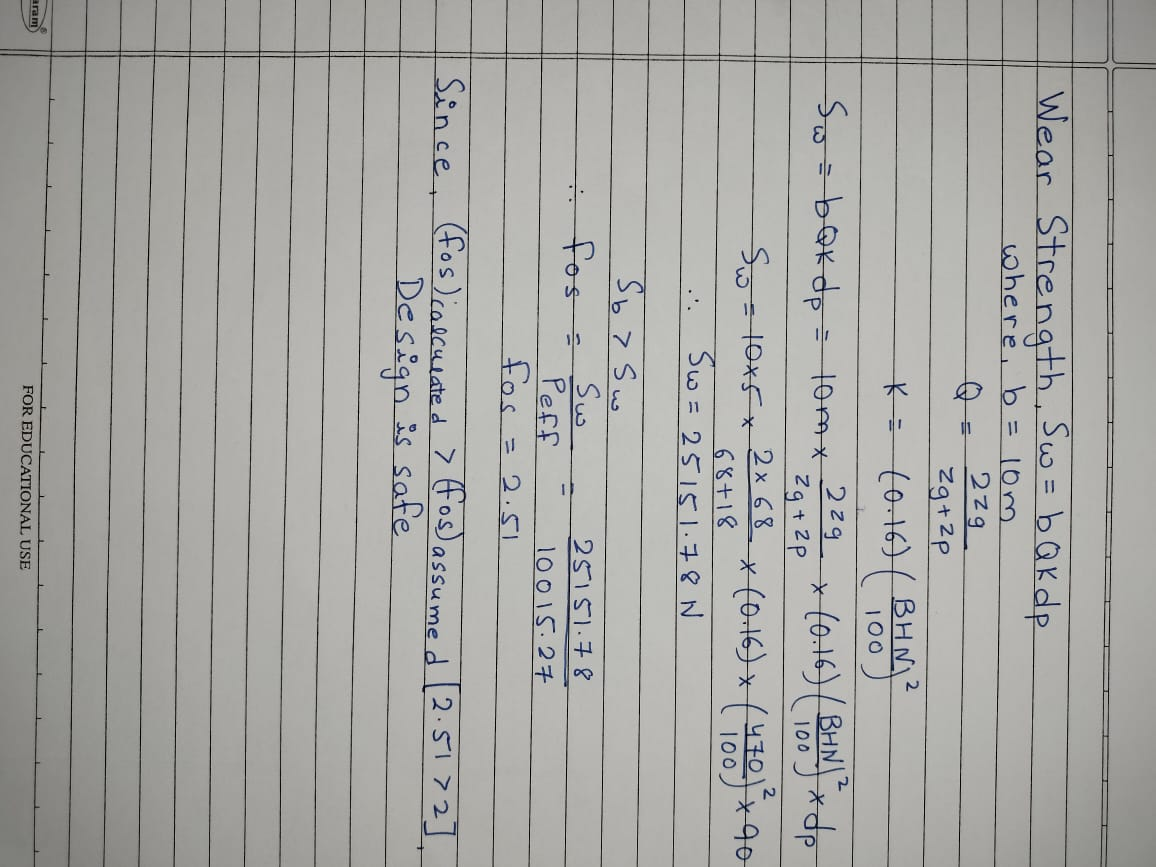 Wear Strength, Sw = bQKdp
where, b = 10m
Q = 2zg / zg+zp
K = (0.16) (BHN / 100)²
Sw = bQKdp = 10m x 2zg / zg+zp x (0.16) (BHN / 100)² x dp
Sw = 10x5 x 2x68 / 68+18 x (0.16) x (470 / 100)² x 90
∴ Sw = 25151.78 N
Sb > Sw
∴ fos = Sw / Peff = 25151.78 / 10015.27
fos = 2.51
Since, (fos)calculated > (fos)assumed [2.51 > 2],
Design is safe
FOR EDUCATIONAL USE
aram®